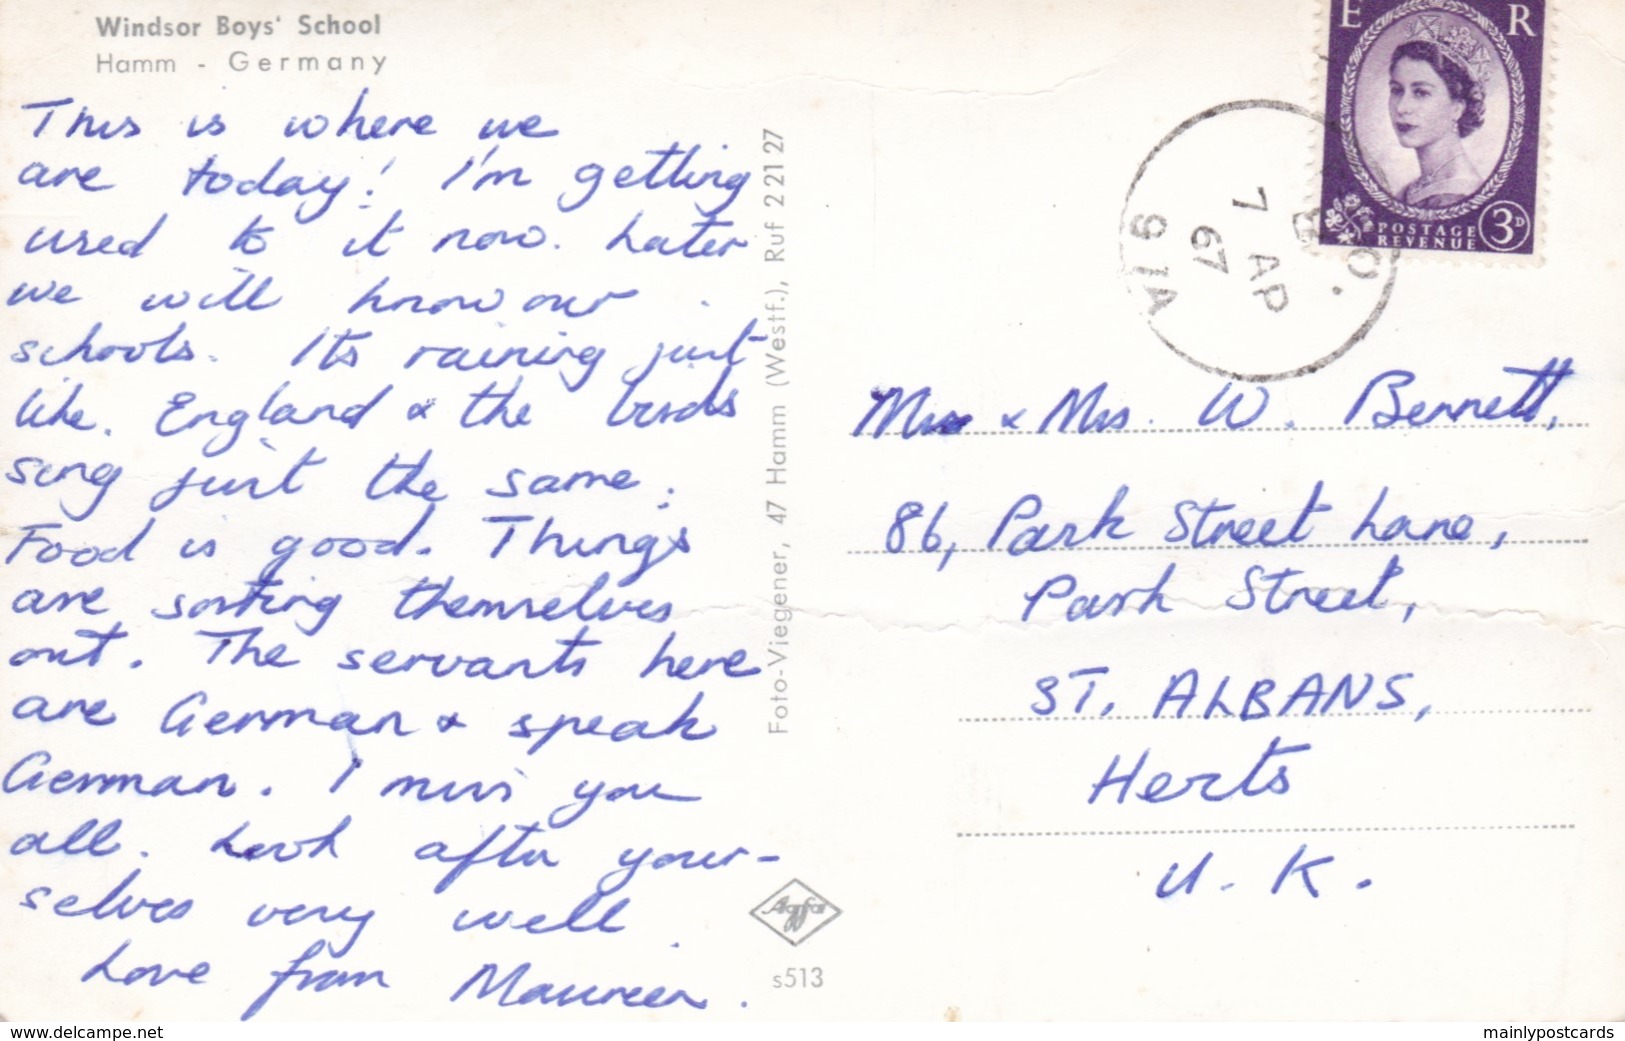 Windsor Boys' School
Hamm - Germany
This is where we
are today! I'm getting
used to it now. Later
we will know our
schools. Its raining just
like England & the birds
sing just the same.
Food is good. Things
are sorting themselves
out. The servants here
are German & speak
German. I miss you
all. Look after your-
selves very well.
Love from Maureen.
Foto-Viegener, 47 Hamm (Westf.), Ruf 2 21 27
Agfa
s513
E R
POSTAGE
REVENUE
3D
7 AP
67
914
Mr & Mrs. W. Bennett,
86, Park Street Lane,
Park Street,
ST. ALBANS,
Herts
U.K.
www.delcampe.net
mainlypostcards